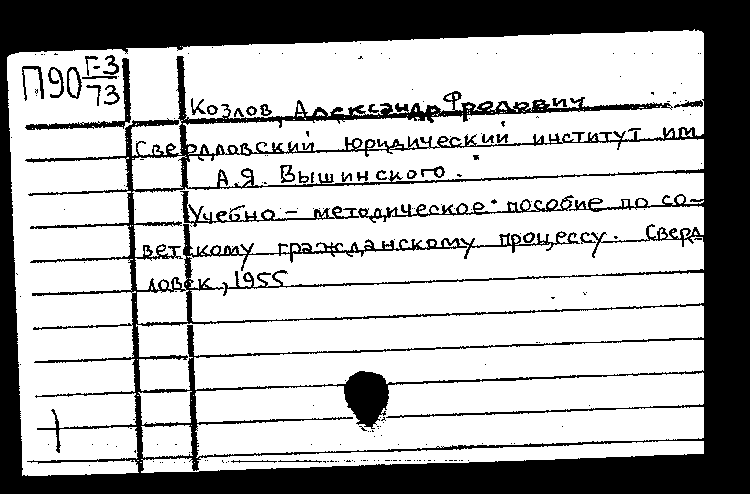 П90 Г-3
73
Козлов, Александр Фролович
Свердловский юридический институт им.
А.Я. Вышинского.
Учебно-методическое пособие по со-
ветскому гражданскому процессу. Сверд
ловск, 1955